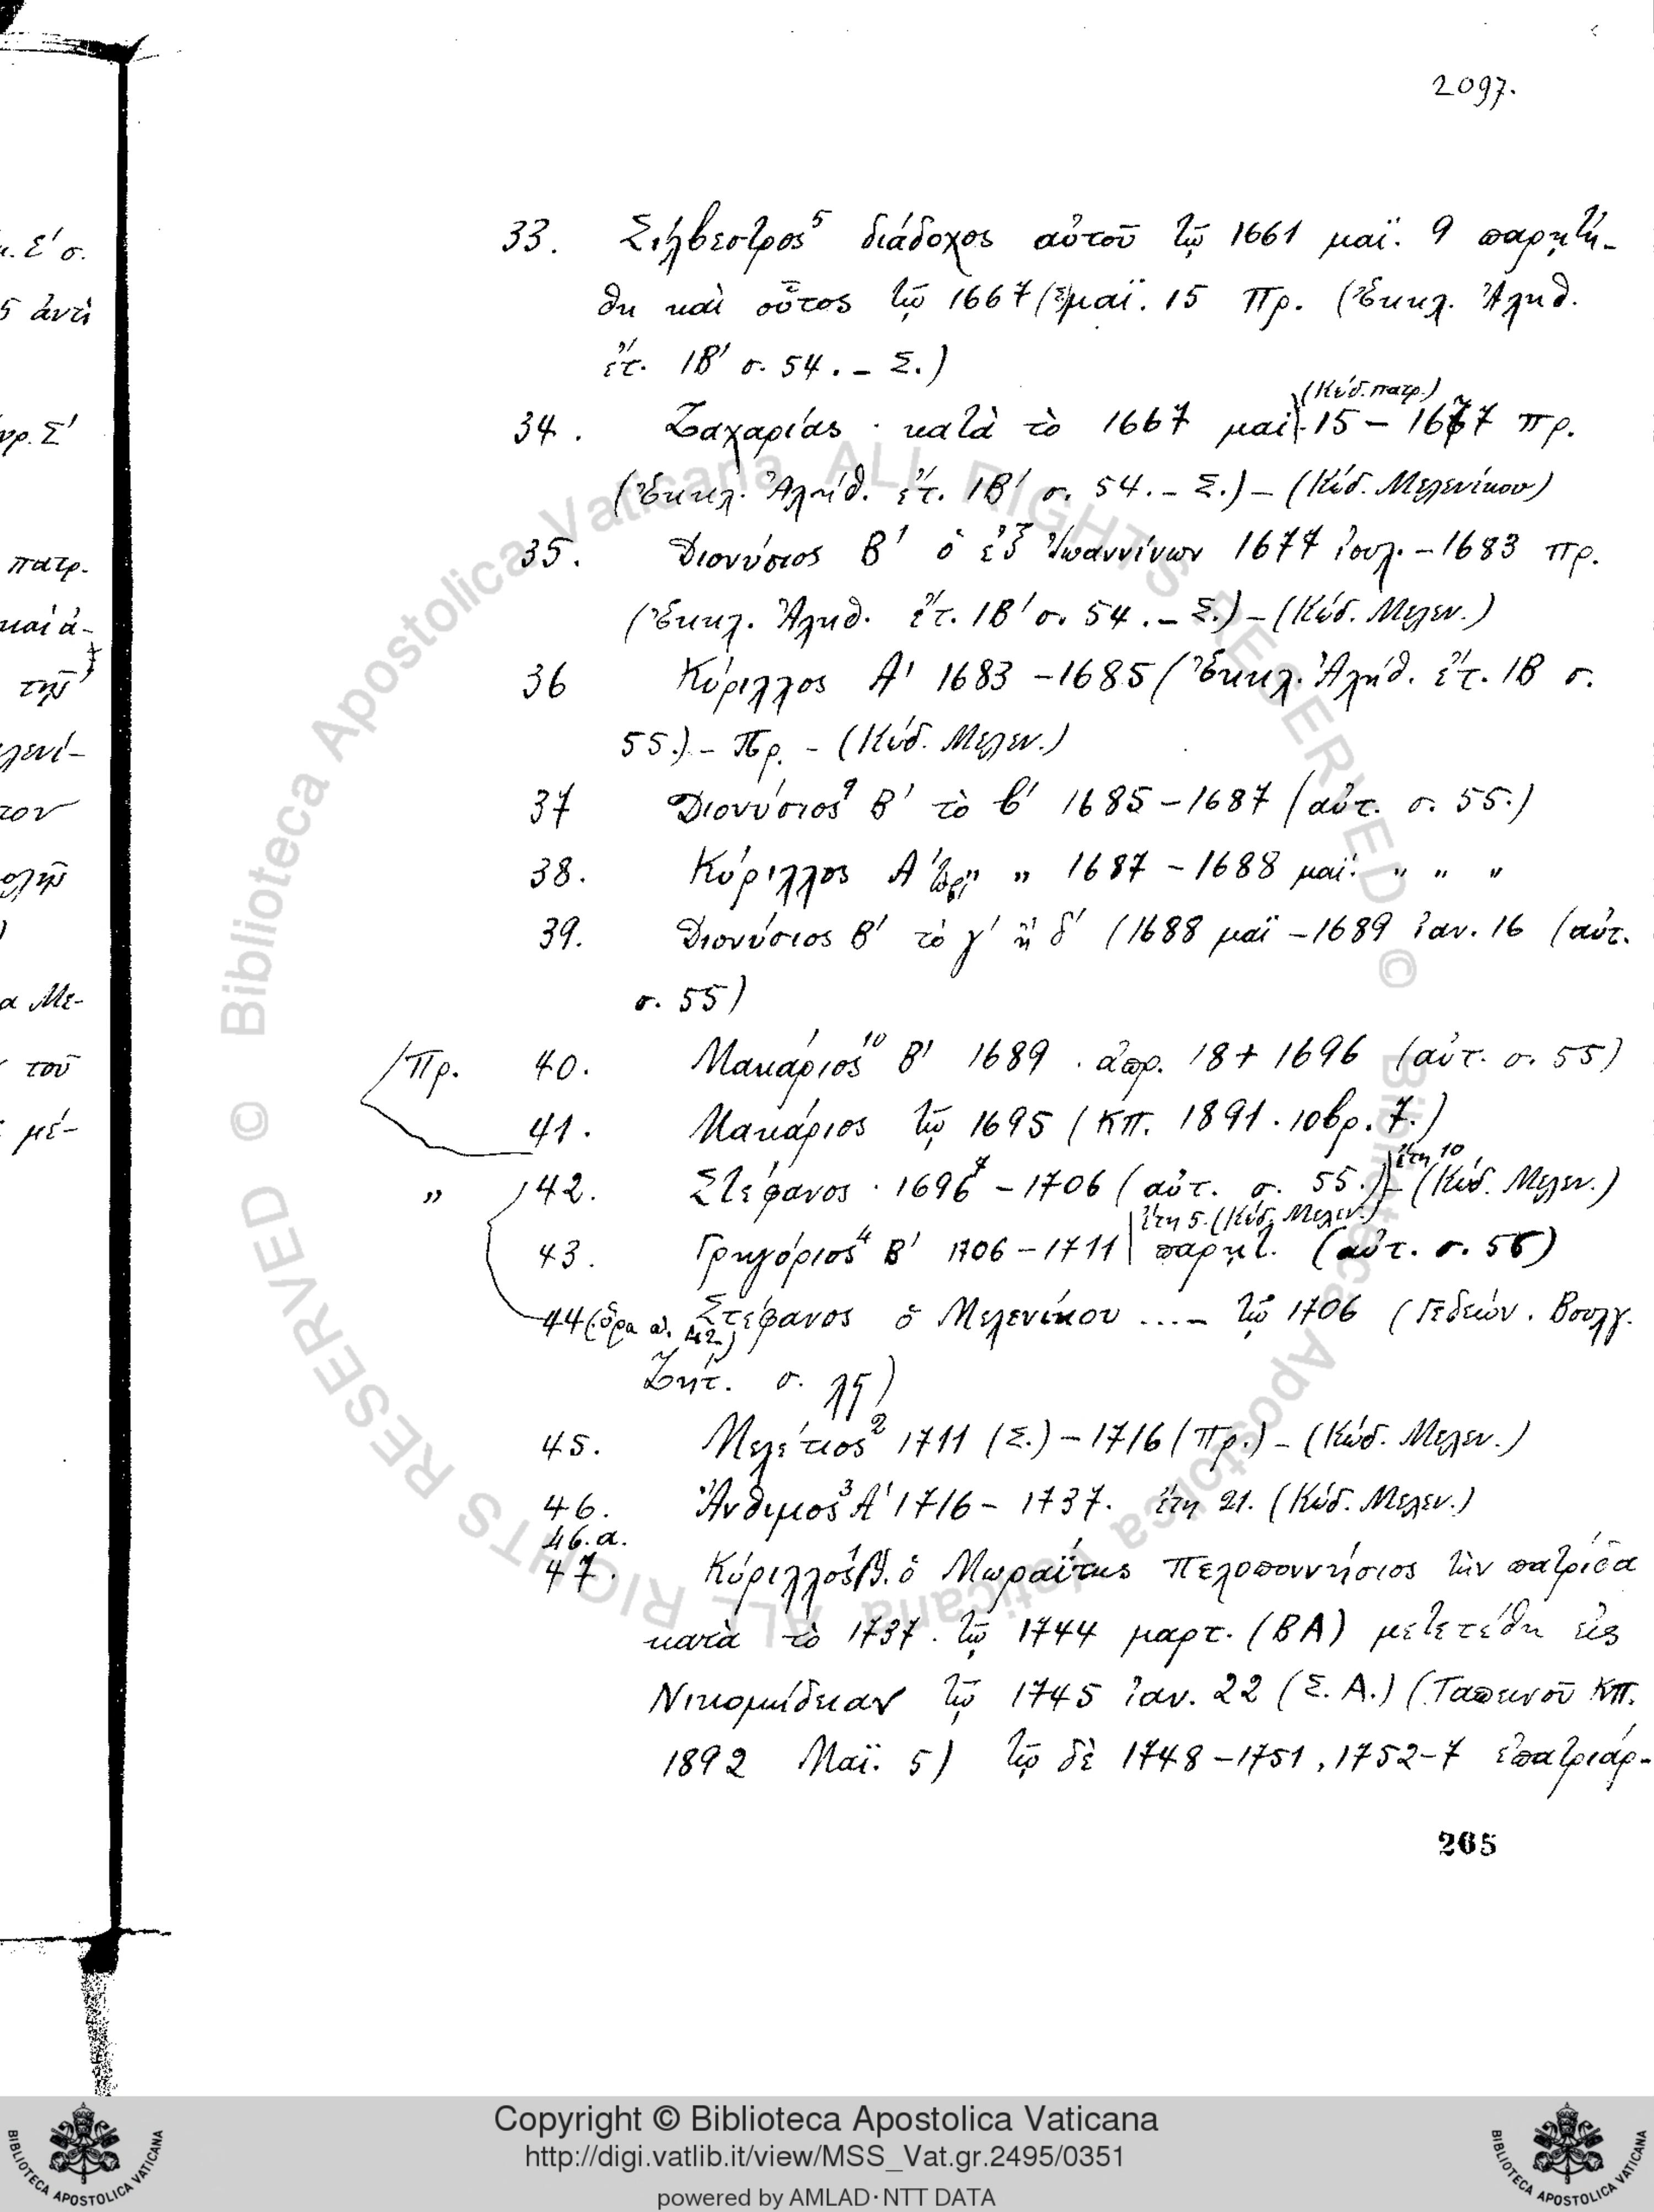 2097.
33. Σίλβεστρος⁵ διάδοχος αὐτοῦ τῷ 1661 μαΐ. 9 παρῃτή-
θη καὶ οὗτος τῷ 1667 (Σ) μαΐ. 15 Πρ. (Ἐκκλ. Ἀληθ.
ἔτ. ΙΒ' σ. 54. - Σ.)
(Κώδ. πατρ.)
34. Ζαχαρίας · κατὰ τὸ 1667 μαΐ. 15 - 1677 πρ.
(Ἐκκλ. Ἀλήθ. ἔτ. ΙΒ' σ. 54. - Σ.) - (Κώδ. Μελενίκου)
35. Διονύσιος Β' ὁ ἐξ Ἰωαννίνων 1677 ἰουλ. - 1683 πρ.
(Ἐκκλ. Ἀληθ. ἔτ. ΙΒ' σ. 54. - Σ.) - (Κώδ. Μελεν.)
36 Κύριλλος Α' 1683 - 1685 (Ἐκκλ. Ἀλήθ. ἔτ. ΙΒ σ.
55.) - Πρ. - (Κώδ. Μελεν.)
37 Διονύσιος⁹ Β' τὸ β' 1685 - 1687 (αὐτ. σ. 55.)
38. Κύριλλος Α' " " 1687 - 1688 μαΐ. " " "
39. Διονύσιος Β' τὸ γ' ἢ δ' (1688 μαΐ - 1689 ἰαν. 16 (αὐτ.
σ. 55)
(Πρ. 40. Μακάριος¹⁰ Β' 1689 . ἀπρ. 18 + 1696 (αὐτ. σ. 55)
41. Μακάριος τῷ 1695 (ΚΠ. 1891 . 10βρ. 7.)
ἔτη 10
" 42. Στέφανος · 1696⁷ - 1706 (αὐτ. σ. 55.) - (Κώδ. Μελεν.)
ἔτη 5. (Κώδ. Μελεν.)
43. Γρηγόριος⁴ Β' 1706 - 1711 παρῃτ. (αὐτ. σ. 55)
44 (ὅρα ἀ. 42.) Στέφανος ὁ Μελενίκου ... - τῷ 1706 (Γεδεών. Βουλγ.
Ζητ. σ. λς)
45. Μελέτιος² 1711 (Σ.) - 1716 (Πρ.) - (Κώδ. Μελεν.)
46. Ἄνθιμος³ Α' 1716 - 1737. ἔτη 21. (Κώδ. Μελεν.)
46.α.
47. Κύριλλος¹ Β. ὁ Μωραΐτης Πελοποννήσιος τὴν πατρίδα
κατὰ τὸ 1737 . τῷ 1744 μαρτ. (ΒΑ) μετετέθη εἰς
Νικομήδειαν τῷ 1745 ἰαν. 22 (Σ. Α.) (Ταπεινοῦ ΚΠ.
1892 Μαΐ. 5) τῷ δὲ 1748 - 1751 , 1752 - 7 ἐπατριάρ-
265
Copyright © Biblioteca Apostolica Vaticana
http://digi.vatlib.it/view/MSS_Vat.gr.2495/0351
powered by AMLAD·NTT DATA